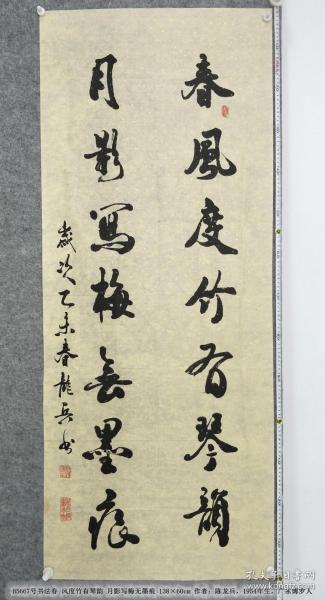 春風度竹有琴韻
月影寫梅無墨痕
歲次乙未春龍兵书
85667号书法春 风度竹有琴韵 月影写梅无墨痕 138×60cm 作者：陈龙兵，1954年生，广东博罗人